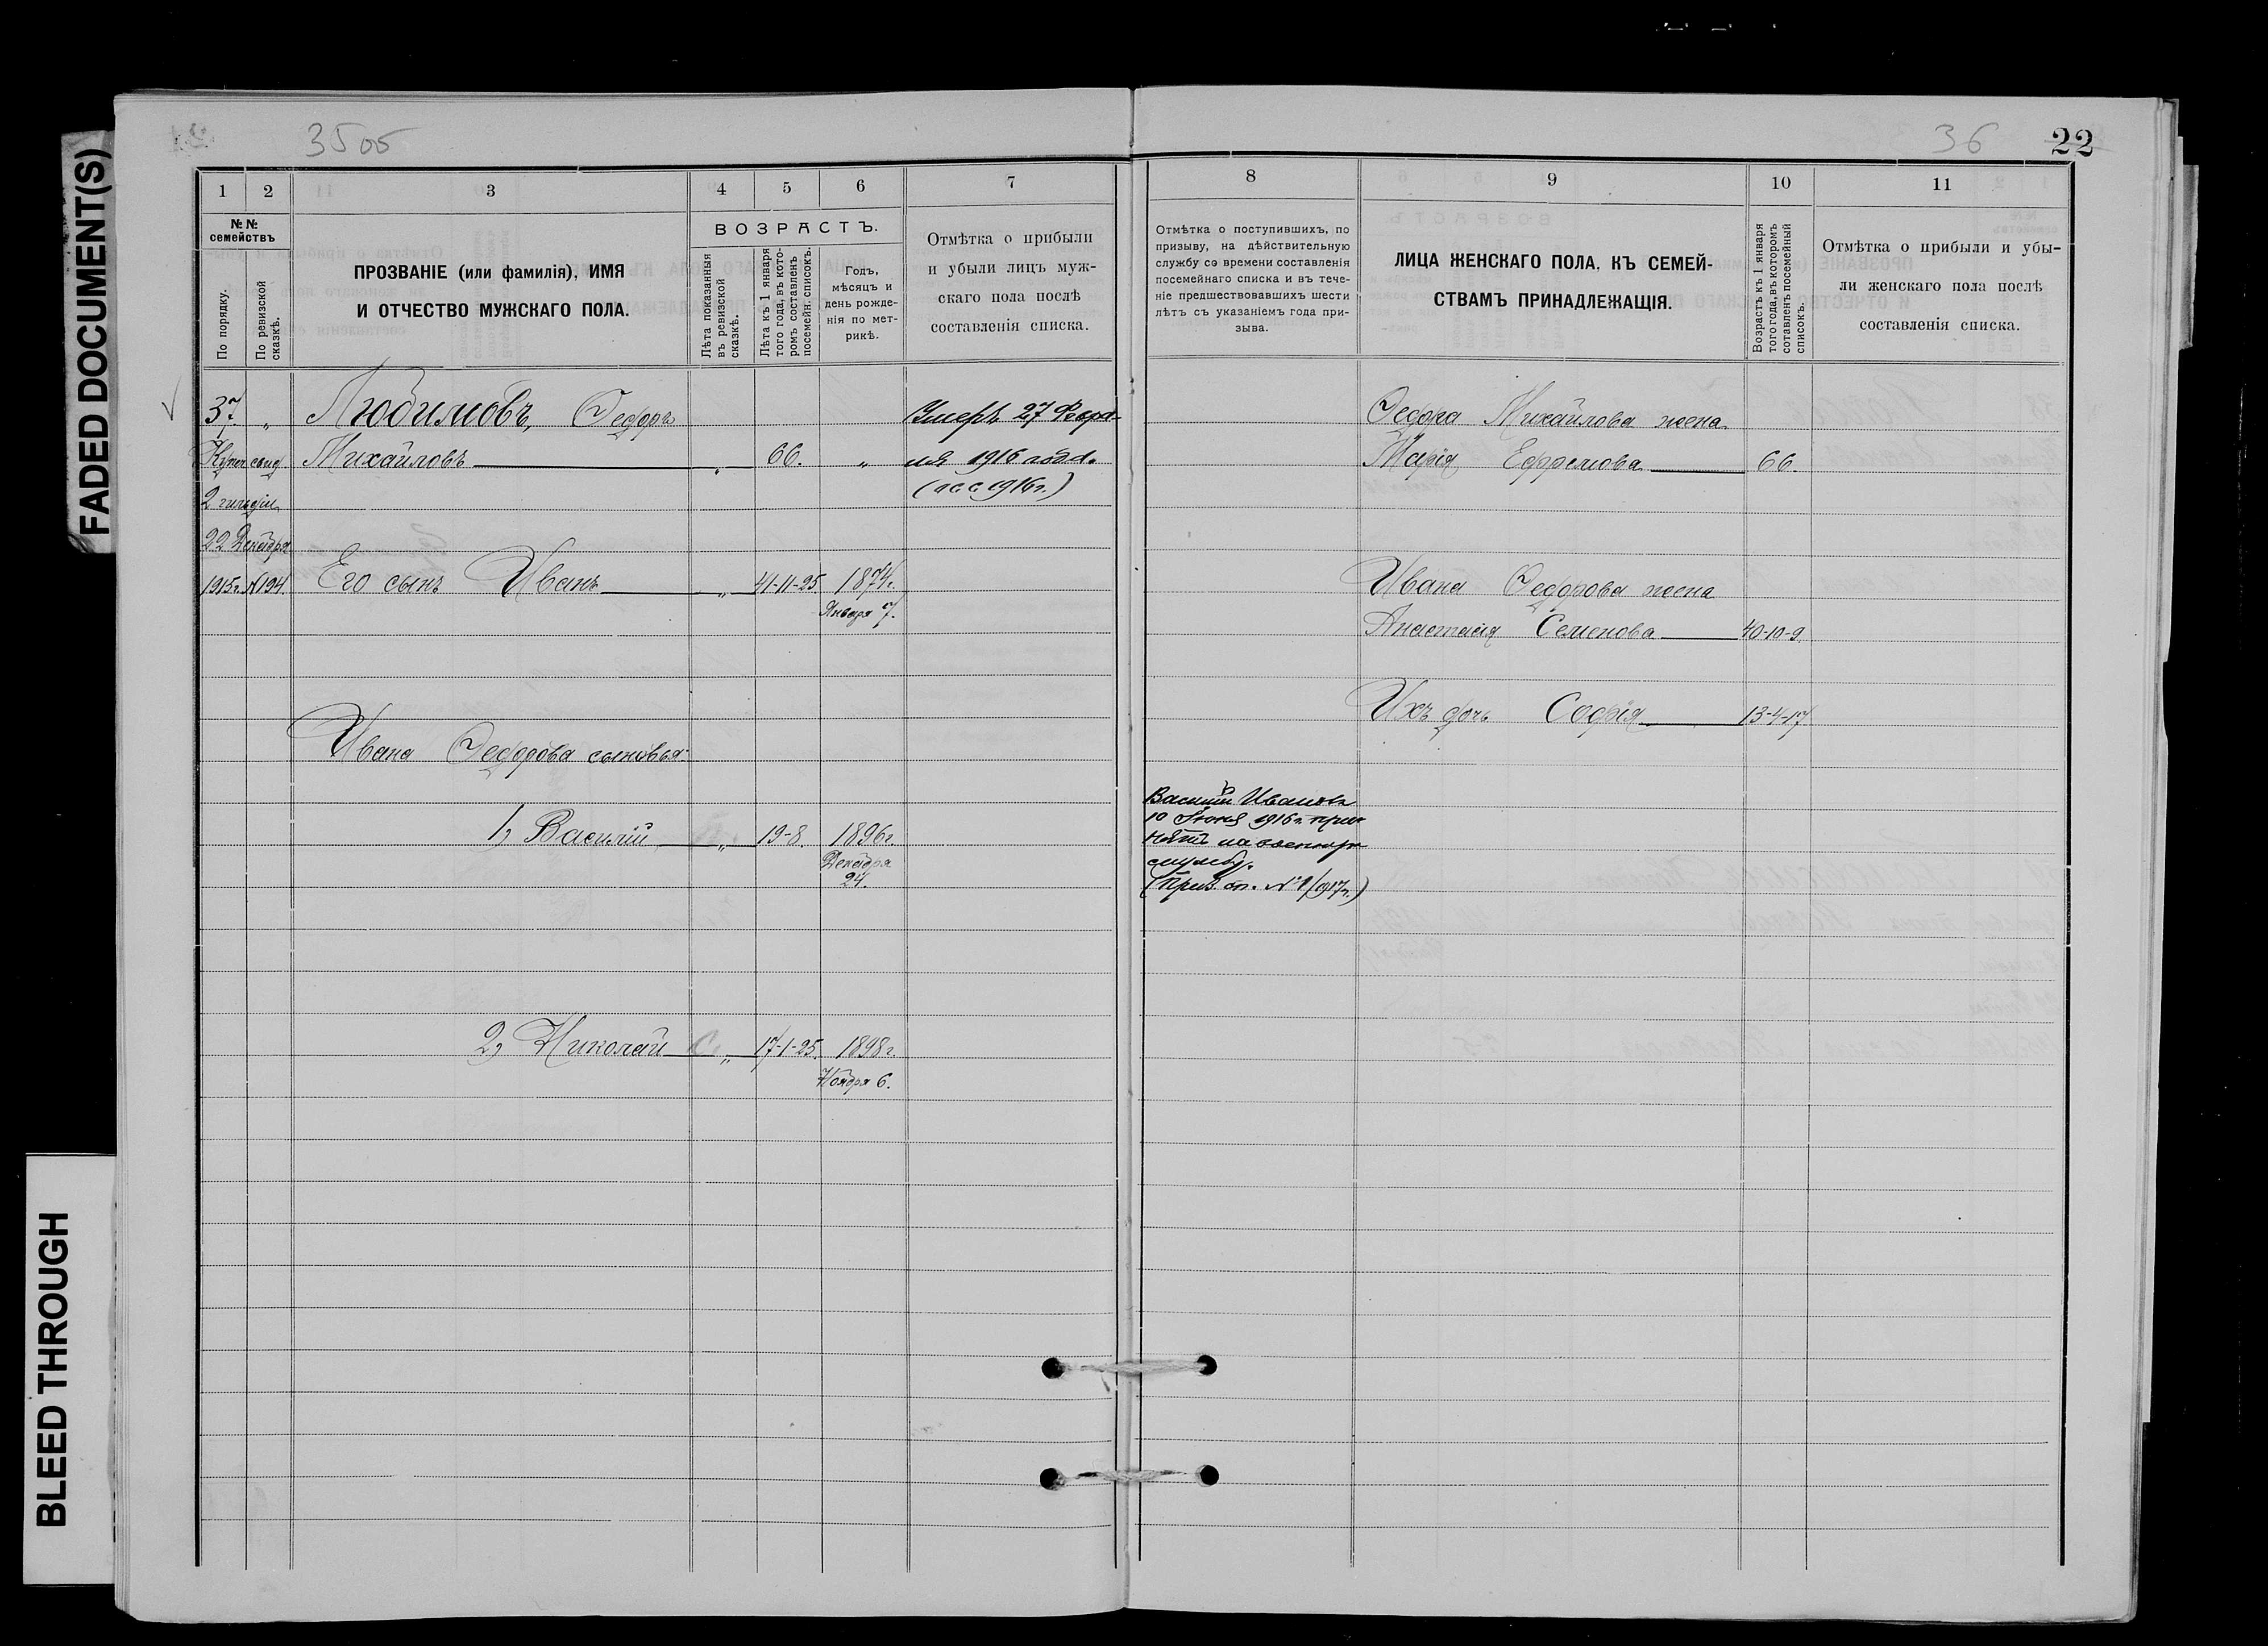 3505
36 22
FADED DOCUMENT(S)
BLEED THROUGH
1 2 3 4 5 6 7
№№ семействъ
По порядку.
По ревизской сказкѣ.
ПРОЗВАНІЕ (или фамилія), ИМЯ
И ОТЧЕСТВО МУЖСКАГО ПОЛА.
ВОЗРАСТЪ.
Лѣта показанныя
въ ревизской
сказкѣ.
Лѣта къ 1 января
того года, въ кото-
ромъ составленъ
посемейн. списокъ.
Годъ,
мѣсяцъ и
день рожде-
нія по мет-
рикѣ.
Отмѣтка о прибыли
и убыли лицъ муж-
скаго пола послѣ
составленія списка.
37. „ Любимовъ, Ѳедоръ Умеръ 27 Февра-
Купеч. свид. Михайловъ „ 66. „ ля 1916 года.
2 гильдіи (1916 г.)
22 Декабря
1915г. №194. Его сынъ Иванъ „ 41-11-25. 1874г.
Января 7.
Ивана Ѳедорова сыновья:
1, Василій „ 19-8. 1896г.
Декабря
24.
2, Николай „ 17-1-25. 1898г.
Ноября 6.
8 9 10 11
Отмѣтка о поступившихъ, по
призыву, на дѣйствительную
службу со времени составленія
посемейнаго списка и въ тече-
ніе предшествовавшихъ шести
лѣтъ съ указаніемъ года при-
зыва.
ЛИЦА ЖЕНСКАГО ПОЛА, КЪ СЕМЕЙ-
СТВАМЪ ПРИНАДЛЕЖАЩІЯ.
Возрастъ къ 1 января
того года, въ которомъ
составленъ посемейный
списокъ.
Отмѣтка о прибыли и убы-
ли женскаго пола послѣ
составленія списка.
Ѳедора Михайлова жена
Марія Ефремова 66.
Ивана Ѳедорова жена
Анастасія Семенова 40-10-9.
Ихъ дочь Софія 13-4-17
Василій Ивановъ
10 1916 г. при-
нятъ на военную
службу.
(Приз. сп. №1/1917г.)